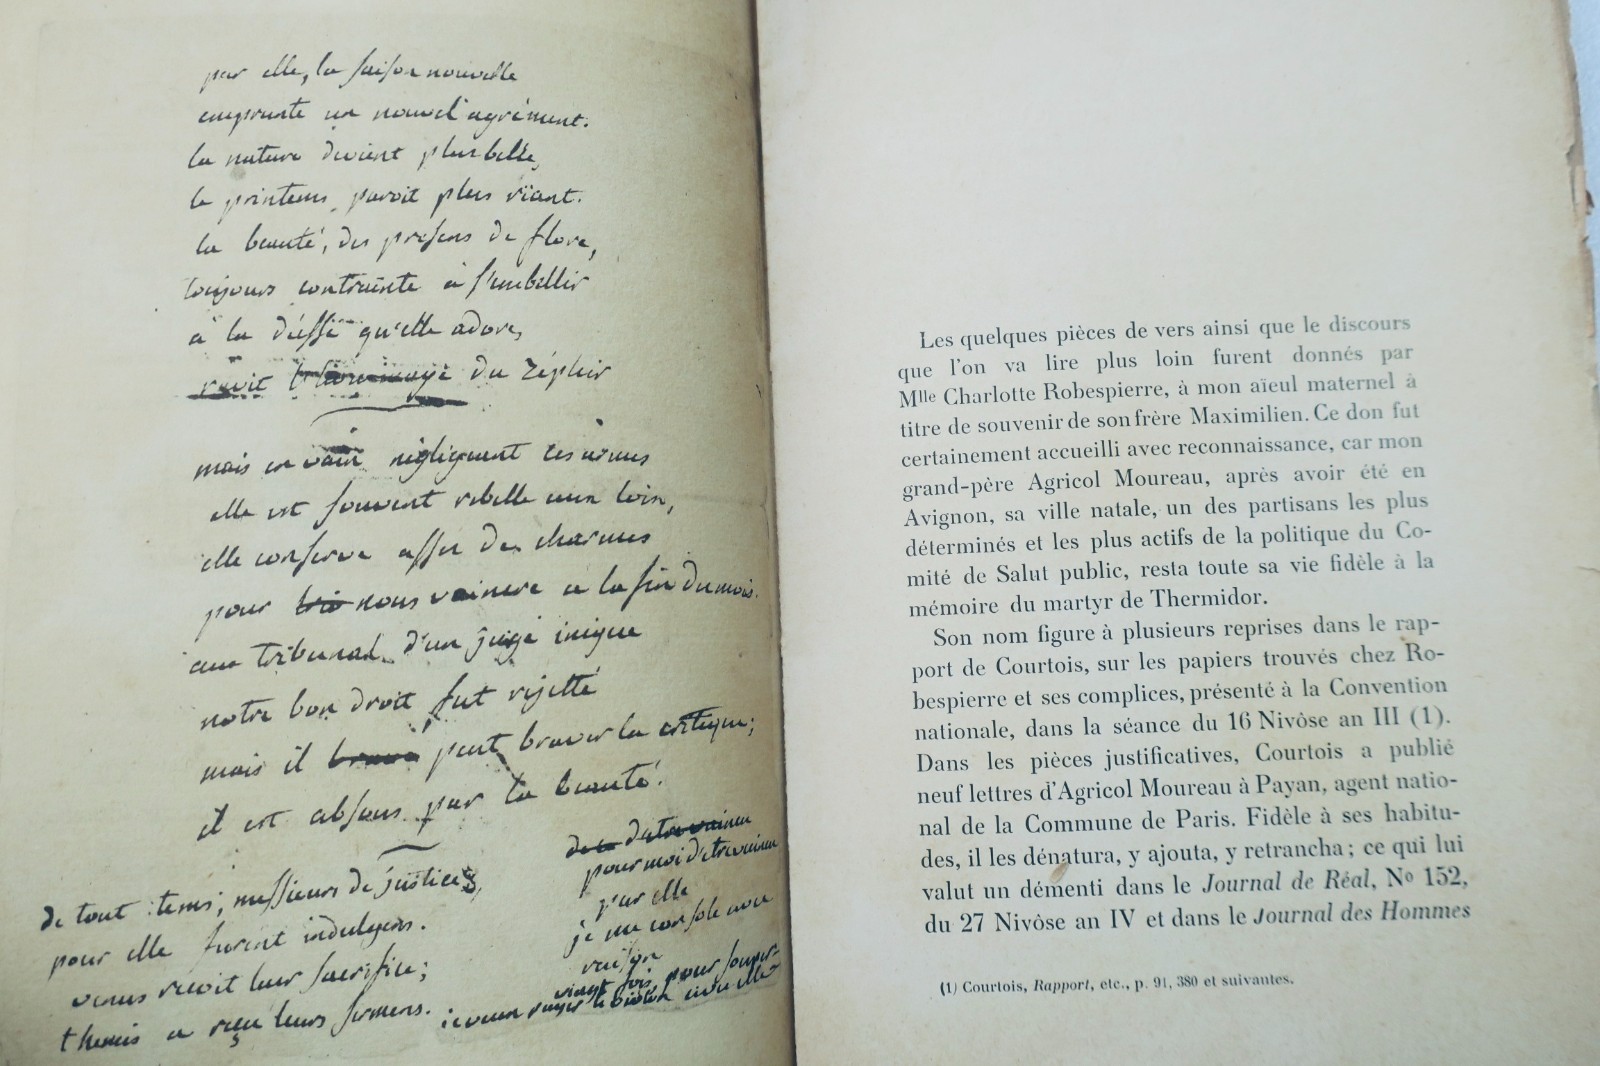 par elle, la saison nouvelle
emprunte un nouvel agrément.
la nature devient plus belle,
le printems paroit plus riant.
la beauté, des presens de flore,
toujours contrainte à s'embellir
à la déesse qu'elle adore,
ravit l'hommage du zéphir
mais en vain négligeant ces armes
elle est souvent rebelle aux loix,
elle conserve assez de charmes
pour nous vaincre a la fin du mois.
au tribunal d'un juge inique
notre bon droit fut rejetté
mais il peut braver la critique;
il est absous par la beauté.
de tout tems, messieurs de justice,
pour elle furent indulgens.
venus recoit leur sacrifice;
themis a reçu leurs sermens.
pour moi d'etre vaincu
par elle
je me console avec
raison
vingt fois, pour souper
Les quelques pièces de vers ainsi que le discours
que l'on va lire plus loin furent donnés par
Mlle Charlotte Robespierre, à mon aïeul maternel à
titre de souvenir de son frère Maximilien. Ce don fut
certainement accueilli avec reconnaissance, car mon
grand-père Agricol Moureau, après avoir été en
Avignon, sa ville natale, un des partisans les plus
déterminés et les plus actifs de la politique du Co-
mité de Salut public, resta toute sa vie fidèle à la
mémoire du martyr de Thermidor.
Son nom figure à plusieurs reprises dans le rap-
port de Courtois, sur les papiers trouvés chez Ro-
bespierre et ses complices, présenté à la Convention
nationale, dans la séance du 16 Nivôse an III (1).
Dans les pièces justificatives, Courtois a publié
neuf lettres d'Agricol Moureau à Payan, agent natio-
nal de la Commune de Paris. Fidèle à ses habitu-
des, il les dénatura, y ajouta, y retrancha ; ce qui lui
valut un démenti dans le Journal de Réal, No 152,
du 27 Nivôse an IV et dans le Journal des Hommes
(1) Courtois, Rapport, etc., p. 91, 380 et suivantes.